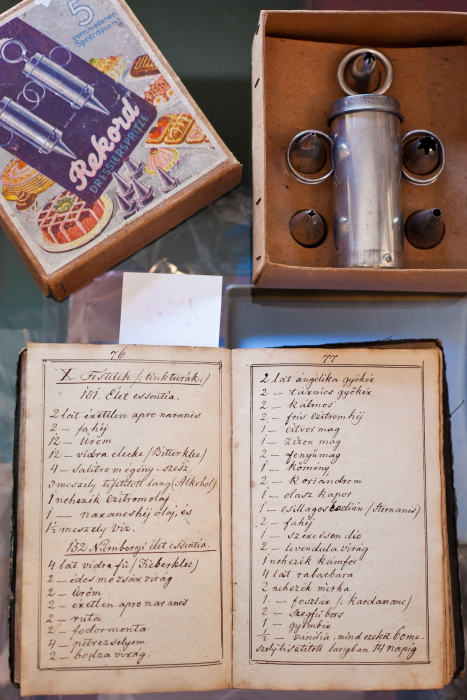 5
verschiedenen
Spritztüllen
Rekord
DRESSIERSPRITZE
76
X. Festékek /: tinkturák:/
151. Élet essentia.
2 lát éretlen apro narancs
2 — fahéj
12 — Üröm
12 — vidra elecks / Bitterklee/
4 — Salétrom égény-szesz,
3 meszely tisztitott lang (Alkohol)
1 nehezék czitromolaj
1 — narancshéj olaj, és
1½ meszely viz.
152 Nürnbergi élet essentia.
4 lát vidra fü / Fieberklee/
2 — édes mozsáx virág
2 — Üröm
2 — éretlen apro narancs
2 — ruta
2 — fodormenta
4 — petrezselyem
2 — bodza virág.
77
2 lát angélika gyökér
2 — tárnics gyökér
2 — kálmos
2 — friss czitromhéj
1 — citvor mag
1 — zizon mag
2 — fenyőmag
1 — kömény
2 — Koriandrom
1 — olasz kapor
1 — csillagos badián / Sternanis/
2 — fahéj
1 — szerecsen dió
2 — levendula virág
1 nehezék kámfor
4 lát rabarbara
2 nehezék mirha
1 — foszlár /: Kardamome/
2 — szegfü bors
1 — gyömbér
½ — vanilia, mind ezeket 6 me-
szely tisztitott langban 14 napig